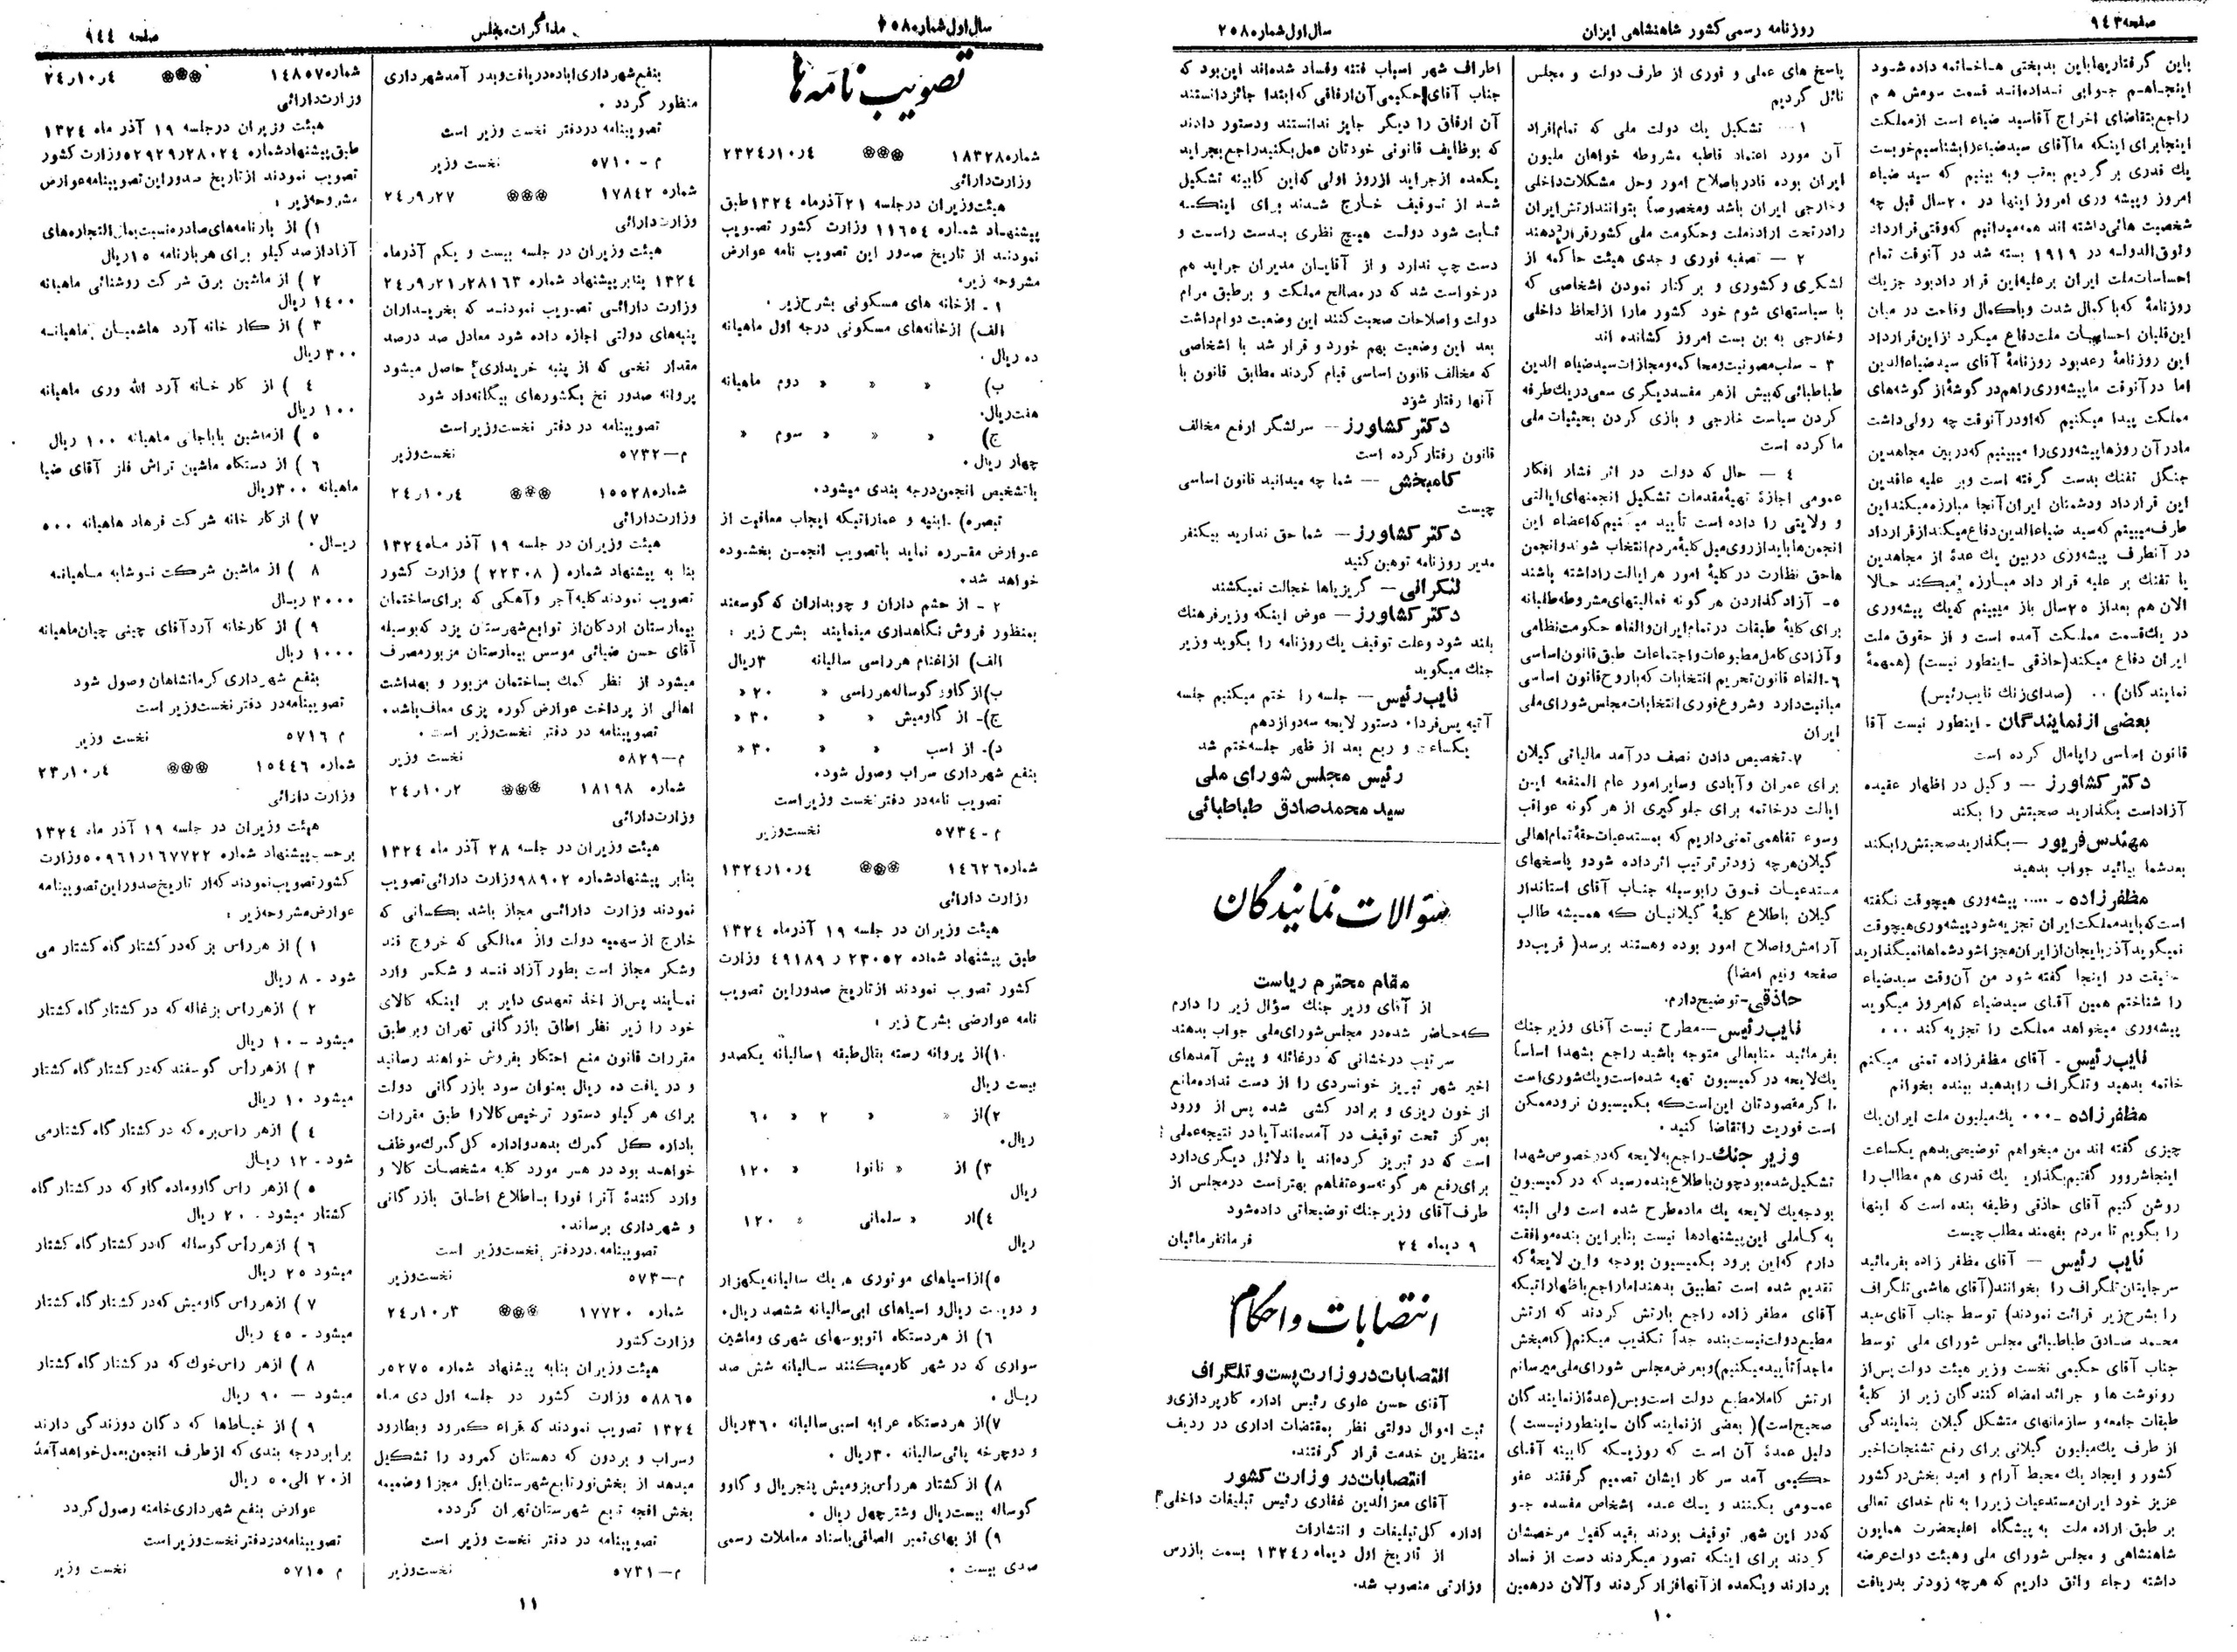 صفحه ۹۴۳
روزنامه رسمی کشور شاهنشاهی ایران
سال اول شماره ۲۵۸
باین گرفتاریها باین بدبختی ها خاتمه داده شود
اینجا هم جوابی نداده‌اند قسمت سومش هم
راجع بتقاضای اخراج آقا سید ضیاء است از مملکت
اینجا برای اینکه ما آقای سید ضیاء را بشناسیم خوبست
یك قدری برگردیم بعقب و به بینیم که سید ضیاء
امروز و پیشه وری امروز اینها در ۲۰ سال قبل چه
شخصیت هائی داشته اند همه میدانیم که وقتی قرارداد
وثوق الدوله در ۱۹۱۹ بسته شد در آنوقت تمام
احساسات ملت ایران بر علیه این قرار داد بود جز یك
روزنامهٔ که با کمال شدت و با کمال وقاحت در میان
این غلیان احساسات ملت دفاع میکرد از این قرارداد
این روزنامهٔ رعد بود روزنامهٔ آقای سید ضیاءالدین
اما در آنوقت ما پیشه‌وری را هم در گوشهٔ از گوشه‌های
مملکت پیدا میکنیم که او در آنوقت چه رولی داشت
ما در آن روزها پیشه‌وری را میبینیم که در بین مجاهدین
جنگل تفنك بدست گرفته است و بر علیه عاقدین
این قرارداد و دشمنان ایران آنجا مبارزه میکند این
طرف میبینیم که سید ضیاءالدین دفاع میکند از قرارداد
در آنطرف پیشه‌وری در بین یك عدهٔ از مجاهدین
با تفنك بر علیه قرار داد مبارزه میکند حالا
الان هم بعد از ۲۵ سال باز میبینم که یك پیشه‌وری
در یك قسمت مملکت آمده است و از حقوق ملت
ایران دفاع میکند (حاذقی ـ اینطور نیست) (همهمهٔ
نمایندگان) .. (صدای زنك نایب رئیس)
بعضی از نمایندگان ـ اینطور نیست آقا
قانون اساسی را پامال کرده است
دکتر کشاورز ـ وکیل در اظهار عقیده
آزاد است بگذارید صحبتش را بکند
مهندس فریور ـ بگذارید صحبتش را بکند
بعد شما بیائید جواب بدهید
مظفر زاده ـ ..... پیشه‌وری هیچوقت نگفته
است که باید مملکت ایران تجزیه شود پیشه‌وری هیچوقت
نمیگوید آذربایجان از ایران مجزا شود شماها نمیگذارید
حقیقت در اینجا گفته شود من آن وقت سید ضیاء
را شناختم همین آقای سید ضیاء که امروز میگوید
پیشه‌وری میخواهد مملکت را تجزیه کند ...
نایب رئیس ـ آقای مظفر زاده تمنی میکنم
خاتمه بدهید و تلگراف را بدهید بنده بخوانم
مظفر زاده ـ ... یك میلیون ملت ایران یك
چیزی گفته اند من میخواهم توضیحی بدهم یکساعت
روشن کنیم آقای حاذقی وظیفه بنده است که اینها
را بگویم تا مردم بفهمند مطلب چیست
نایب رئیس ـ آقای مظفر زاده بفرمائید
سر جایتان تلگراف را بخوانند (آقای هاشمی تلگراف
را بشرح زیر قرائت نمودند) توسط جناب آقای سید
محمد صادق طباطبائی مجلس شورای ملی توسط
جناب آقای حکیمی نخست وزیر هیئت دولت پس از
رونوشت ها و جرائد امضاء کنندگان زیر از کلیهٔ
طبقات جامعه و سازمانهای متشکل گیلان بنمایندگی
از طرف یك میلیون گیلانی برای رفع تشنجات اخیر
کشور و ایجاد یك محیط آرام و امید بخش در کشور
عزیز خود ایران مستدعیات زیر را به نام خدای تعالی
بر طبق اراده ملت به پیشگاه اعلیحضرت همایون
شاهنشاهی و مجلس شورای ملی و هیئت دولت عرضه
داشته رجاء واثق داریم که هرچه زودتر بدریافت
پاسخ های عملی و فوری از طرف دولت و مجلس
نائل گردیم
۱ ـ تشکیل یك دولت ملی که تمام افراد
آن مورد اعتماد قاطبه مشروطه خواهان ملیون
ایران بوده قادر باصلاح امور وحل مشکلات داخلی
وخارجی ایران باشد ومخصوصاً بتوانند ارتش ایران
را در تحت اراده ملت وحکومت ملی کشور قرار دهند
۲ ـ تصفیه فوری و جدی هیئت حاکمه از
لشکری و کشوری و بر کنار نمودن اشخاصی که
با سیاستهای شوم خود کشور مارا از لحاظ داخلی
وخارجی به بن بست امروز کشانده اند
۳ ـ سلب مصونیت و محاکمه و مجازات سید ضیاء الدین
طباطبائی که بیش از هر مفسد دیگری سعی در یك طرفه
کردن سیاست خارجی و بازی کردن بحیثیات ملی
ما کرده است
۴ ـ حال که دولت در اثر فشار افکار
عمومی اجازهٔ تهیهٔ مقدمات تشکیل انجمنهای ایالتی
و ولایتی را داده است تأیید میکنیم که اعضاء این
انجمن‌ها باید از روی میل کلیهٔ مردم انتخاب شوند و انجمن
ها حق نظارت در کلیهٔ امور هر ایالت را داشته باشند
۵ ـ آزاد گذاردن هر گونه فعالیتهای مشروطه طلبانه
برای کلیهٔ طبقات در تمام ایران والغاء حکومت نظامی
و آزادی کامل مطبوعات واجتماعات طبق قانون اساسی
۶ ـ الغاء قانون تحریم انتخابات که با روح قانون اساسی
مباینت دارد وشروع فوری انتخابات مجلس شورای ملی
ایران
۷ ـ تخصیص دادن نصف درآمد مالیاتی گیلان
برای عمران وآبادی وسایر امور عام المنفعه این
ایالت درخاتمه برای جلوگیری از هر گونه عواقب
وسوء تفاهمی تمنی داریم که بمستدعیات حقهٔ تمام اهالی
گیلان هرچه زودتر ترتیب اثر داده شود و پاسخهای
مستدعیات فوق را بوسیله جناب آقای استاندار
گیلان باطلاع کلیهٔ گیلانیان که همیشه طالب
آرامش و اصلاح امور بوده وهستند برسد (قریب دو
صفحه ونیم امضا)
حاذقی ـ توضیح دارم.
نایب رئیس ـ مطرح نیست آقای وزیر جنك
بفرمائید جنابعالی متوجه باشید راجع بشهدا اساساً
یك لایحه در کمیسیون تهیه شده است ویك شوری است
اگر مقصودتان این است که بکمیسیون نرود ممکن
است فوریت را تقاضا کنید.
وزیر جنك ـ راجع به لایحه که در خصوص شهدا
تشکیل شده بود چون باطلاع بنده رسید که در کمیسیون
بودجه یك لایحه یك ماده طرح شده است ولی البته
به کاملی این پیشنهادها نیست بنابراین بنده موافقت
دارم که این برود بکمیسیون بودجه واین لایحهٔ که
تقدیم شده است تطبیق بدهند اما راجع باظهاراتیکه
آقای مظفر زاده راجع بارتش کردند که ارتش
مطیع دولت نیست بنده جداً تکذیب میکنم (کامبخش
ما جداً تأیید میکنیم) و بعرض مجلس شورای ملی میرسانم
ارتش کاملا مطیع دولت است وبس (عدهٔ از نمایندگان
صحیح است) (بعضی از نمایندگان ـ اینطور نیست)
دلیل عمدهٔ آن است که روزیکه کابینه آقای
حکیمی آمد سر کار ایشان تصمیم گرفتند عفو
عمومی بکنند و یك عده اشخاص مفسده جو
که در این شهر توقیف بودند بقید کفیل مرخصشان
کردند برای اینکه تصور میکردند دست از فساد
بردارند ویکعده از آنها فرار کردند وآلان در همین
اطراف شهر اسباب فتنه وفساد شده‌اند این بود که
جناب آقای حکیمی آن ارفاقی که ابتدا جائز دانستند
آن ارفاق را دیگر جایز ندانستند ودستور دادند
که بوظایف قانونی خودتان عمل بکنید راجع بجراید
یکعده از جراید از روز اولی که این کابینه تشکیل
شد از توقیف خارج شدند برای اینکه
ثابت شود دولت هیچ نظری بدست راست و
دست چپ ندارد و از آقایان مدیران جراید هم
درخواست شد که در مصالح مملکت و بر طبق مرام
دولت واصلاحات صحبت کنند این وضعیت دوام داشت
بعد این وضعیت بهم خورد و قرار شد با اشخاصی
که مخالف قانون اساسی قیام کردند مطابق قانون با
آنها رفتار شود
دکتر کشاورز ـ سرلشگر ارفع مخالف
قانون رفتار کرده است
کامبخش ـ شما چه میدانید قانون اساسی
چیست
دکتر کشاورز ـ شما حق ندارید بیکنفر
مدیر روزنامه توهین کنید
لنکرانی ـ گریزپاها خجالت نمیکشند
دکتر کشاورز ـ عوض اینکه وزیر فرهنك
بلند شود وعلت توقیف یك روزنامه را بگوید وزیر
جنك میگوید
نایب رئیس ـ جلسه را ختم میکنیم جلسه
آتیه پس‌فردا دستور لایحه سه دوازدهم
یکساعت و ربع بعد از ظهر جلسه ختم شد
رئیس مجلس شورای ملی
سید محمدصادق طباطبائی
سؤالات نمایندگان
مقام محترم ریاست
از آقای وزیر جنك سؤال زیر را دارم
که حاضر شده در مجلس شورای ملی جواب بدهند
سرتیپ درخشانی که در غائله و پیش آمدهای
اخیر شهر تبریز خونسردی را از دست نداده مانع
از خون ریزی و برادر کشی شده پس از ورود
بمرکز تحت توقیف در آمده‌اند آیا در نتیجه عملی
است که در تبریز کرده‌اند یا دلائل دیگری دارد
برای رفع هر گونه سوء تفاهم بهتر است در مجلس از
طرف آقای وزیر جنك توضیحاتی داده شود
۹ دیماه ۲۴ فرمانفرمائیان
انتصابات و احکام
انتصابات در وزارت پست و تلگراف
آقای حسن علوی رئیس اداره کارپردازی و
ثبت اموال دولتی نظر بمقتضات اداری در ردیف
منتظرین خدمت قرار گرفتند.
انتصابات در وزارت کشور
آقای معزالدین غفاری رئیس تبلیغات داخلی
اداره کل تبلیغات و انتشارات
از تاریخ اول دیماه ۱۳۲۴ بسمت بازرس
وزارتی منصوب شد.
۱۰
سال اول شماره ۲۵۸
مذاکرات مجلس
صفحه ۹۴۴
تصویب نامه‌ها
شماره ۱۸۳۲۸ ۲۳۲۴ر۱۰ر۴
وزارت دارائی
هیئت وزیران در جلسه ۲۱ آذر ماه ۱۳۲۴ طبق
پیشنهاد شماره ۱۱۶۵۴ وزارت کشور تصویب
نمودند از تاریخ صدور این تصویب نامه عوارض
مشروحه زیر:
۱ ـ از خانه های مسکونی بشرح زیر.
الف) از خانه‌های مسکونی درجه اول ماهیانه
ده ریال.
ب) « « « دوم ماهیانه
هفت ریال.
ج) « « « سوم «
چهار ریال.
با تشخیص انجمن درجه بندی میشود.
تبصره) ـ ابنیه و عماراتیکه ایجاب معافیت از
عوارض مقرره نماید با تصویب انجمن بخشوده
خواهد شد.
۲ ـ از حشم داران و چوبداران که گوسفند
بمنظور فروش نگاهداری مینمایند بشرح زیر:
الف) از اغنام هر راسی سالیانه ۳ ریال
ب) از گاو و گوساله هر راسی « ۲۰ «
ج) ـ از گاومیش « « ۳۰ «
د) ـ از اسب « « ۳۰ «
بنفع شهرداری سراب وصول شود.
تصویب نامه در دفتر نخست وزیر است
م ـ ۵۷۳۴ نخست وزیر
شماره ۱۴۶۲۶ ۱۳۲۴ر۱۰ر۴
وزارت دارائی
هیئت وزیران در جلسه ۱۹ آذرماه ۱۳۲۴
طبق پیشنهاد شماره ۲۳۰۵۲ ر ۴۹۱۸۹ وزارت
کشور تصویب نمودند از تاریخ صدور این تصویب
نامه عوارضی بشرح زیر:
۱) از پروانه رسته بقال طبقه ۱ سالیانه یکصدو
بیست ریال
۲) از « « ۲ « ۶۰
ریال.
۳) از « نانوا « ۱۲۰
ریال
۴) از « سلمانی « ۱۲۰
ریال
۵) از اسیاهای موتوری هر یك سالیانه یکهزار
و دویست ریال و اسیاهای ابی سالیانه ششصد ریال.
۶) از هر دستگاه اتوبوسهای شهری وماشین
سواری که در شهر کار میکنند سالیانه شش صد
ریال.
۷) از هر دستگاه عرابه اسبی سالیانه ۳۶۰ ریال
و دوچرخه پائی سالیانه ۳۰ ریال.
۸) از کشتار هر راس بزومیش پنجریال و گاوو
گوساله بیست ریال وشتر چهل ریال.
۹) از بهای تمبر الصاقی باسناد معاملات رسمی
صدی بیست.
بنفع شهرداری اباده دریافت و بدر آمد شهرداری
منظور گردد.
تصویبنامه در دفتر نخست وزیر است
م ـ ۵۷۱۰ نخست وزیر
شماره ۱۷۸۴۲ ۲۴ر۹ر۲۷
وزارت دارائی
هیئت وزیران در جلسه بیست و یکم آذرماه
۱۳۲۴ بنابر پیشنهاد شماره ۲۸۱۶۳ر۲۱ر۹ر۲۴
وزارت دارائی تصویب نمودند که بخریداران
پنبه‌های دولتی اجازه داده شود معادل صد درصد
مقدار نخی که از پنبه خریداری حاصل میشود
پروانه صدور نخ بکشورهای بیگانه داد شود
تصویبنامه در دفتر نخست وزیر است
م ـ ۵۷۳۲ نخست وزیر
شماره ۱۵۵۲۸ ۲۴ر۱۰ر۴
وزارت دارائی
هیئت وزیران در جلسه ۱۹ آذر ماه ۱۳۲۴
بنا به پیشنهاد شماره (۲۲۳۰۸) وزارت کشور
تصویب نمودند کلیه آجر وآهکی که برای ساختمان
بیمارستان اردکان از توابع شهرستان یزد که بوسیله
آقای حسن ضیائی موسس بیمارستان مزبور مصرف
میشود از نظر کمك بساختمان مزبور و بهداشت
اهالی از پرداخت عوارض کوره پزی معاف باشد.
تصویبنامه در دفتر نخست وزیر است.
م ـ ۵۸۲۹ نخست وزیر
شماره ۱۸۱۹۸ ۲۴ر۱۰ر۲
وزارت دارائی
هیئت وزیران در جلسه ۲۸ آذر ماه ۱۳۲۴
بنابر پیشنهاد شماره ۹۸۹۰۲ وزارت دارائی تصویب
نمودند وزارت دارائی مجاز باشد بکسانی که
خارج از سهمیه دولت واز ممالکی که خروج قند
وشکر مجاز است بطور آزاد قند و شکر وارد
نمایند پس از اخذ تعهدی دایر بر اینکه کالای
خود را زیر نظر اطاق بازرگانی تهران وبر طبق
مقررات قانون منع احتکار بفروش خواهند رسانید
و دریافت ده ریال بعنوان سود بازرگانی دولت
برای هر کیلو دستور ترخیص کالارا طبق مقررات
باداره کل گمرك بدهد و اداره کل گمرك موظف
خواهد بود در هر مورد کلیه مشخصات کالا و
وارد کنندهٔ آنرا فورا باطلاع اطاق بازرگانی
و شهرداری برساند.
تصویبنامه در دفتر نخست وزیر است
م ـ ۵۷۳ نخست وزیر
شماره ۱۷۷۲۰ ۲۴ر۱۰ر۳
وزارت کشور
هیئت وزیران بنابه پیشنهاد شماره ۵۲۷۵ر
۵۸۸۶۵ وزارت کشور در جلسه اول دی ماه
۱۳۲۴ تصویب نمودند که قراء کمرود وبطارود
وسراب و بردون که دهستان کمرود را تشکیل
میدهد از بخش نور تابع شهرستان بابل مجزا وضمیمه
بخش افجه تابع شهرستان تهران گردد.
تصویبنامه در دفتر نخست وزیر است
م ـ ۵۷۳۱ نخست وزیر
شماره ۱۴۸۵۷ ۲۴ر۱۰ر۴
وزارت دارائی
هیئت وزیران در جلسه ۱۹ آذر ماه ۱۳۲۴
طبق پیشنهاد شماره ۲۸۰۲۴ر۵۲۹۲۹ وزارت کشور
تصویب نمودند از تاریخ صدور این تصویبنامه عوارض
مشروحه زیر:
۱) از بارنامه‌های صادره نسبت بمال التجاره‌های
آزاد از صد کیلو برای هر بارنامه ۱۵ ریال
۲) از ماشین برق شرکت روشنائی ماهیانه
۱۴۰۰ ریال
۳) از کار خانه آرد هاشمیان ماهیانه
۳۰۰ ریال
۴) از کار خانه آرد الله وری ماهیانه
۱۰۰ ریال
۵) از ماشین باباجانی ماهیانه ۱۰۰ ریال
۶) از دستگاه ماشین تراش فلز آقای ضیا
ماهیانه ۳۰۰ ریال
۷) از کار خانه شرکت فرهاد ماهیانه ۵۰۰
ریال.
۸) از ماشین شرکت نوشابه ماهیانه
۲۰۰۰ ریال
۹) از کارخانه آرد آقای چینی چیان ماهیانه
۱۰۰۰ ریال
بنفع شهرداری کرمانشاهان وصول شود
تصویبنامه در دفتر نخست وزیر است
م ۵۷۱۶ نخست وزیر
شماره ۱۵۴۴۶ ۲۳ر۱۰ر۴
وزارت دارائی
هیئت وزیران در جلسه ۱۹ آذر ماه ۱۳۲۴
برحسب پیشنهاد شماره ۱۶۷۷۲۲ر۵۰۹۶۱ وزارت
کشور تصویب نمودند که از تاریخ صدور این تصویبنامه
عوارض مشروحه زیر:
۱) از هر راس بز که در کشتار گاه کشتار می
شود ـ ۸ ریال
۲) ازهر راس بزغاله که در کشتار گاه کشتار
میشود ـ ۱۰ ریال
۳) ازهر راس گوسفند که در کشتار گاه کشتار
میشود ۱۰ ریال
۴) ازهر راس بره که در کشتار گاه کشتار می
شود ـ ۱۲ ریال
۵) ازهر راس گاو و ماده گاو که در کشتار گاه
کشتار میشود ـ ۲۰ ریال
۶) ازهر راس گوساله که در کشتار گاه کشتار
میشود ۲۵ ریال
۷) ازهر راس گاومیش که در کشتار گاه کشتار
میشود ـ ۴۵ ریال
۸) ازهر راس خوك که در کشتار گاه کشتار
میشود ـ ۹۰ ریال
۹) از خیاط‌ها که دکان دوزندگی دارند
برابر درجه بندی که از طرف انجمن بعمل خواهد آمد
از ۲۰ الی ۵۰ ریال
عوارض بنفع شهرداری خامنه وصول گردد
تصویبنامه در دفتر نخست وزیر است
م ۵۷۱۵ نخست وزیر
۱۱